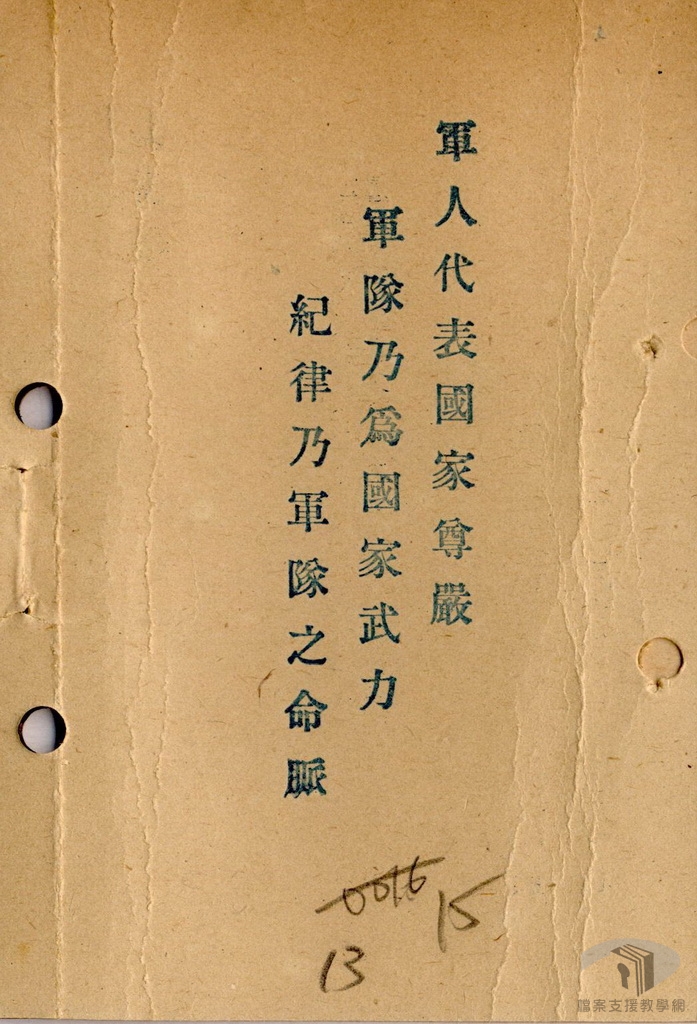 軍人代表國家尊嚴
軍隊乃為國家武力
紀律乃軍隊之命脈
0016
15
13
檔案支援教學網